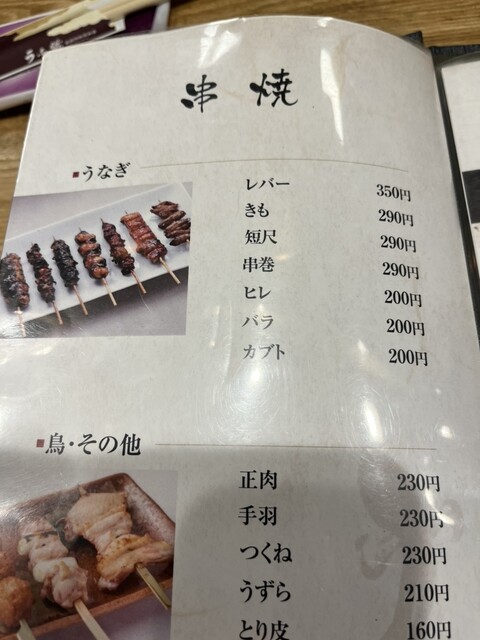 串焼
■うなぎ
レバー 350円
きも 290円
短尺 290円
串巻 290円
ヒレ 200円
バラ 200円
カブト 200円
■鳥・その他
正肉 230円
手羽 230円
つくね 230円
うずら 210円
とり皮 160円